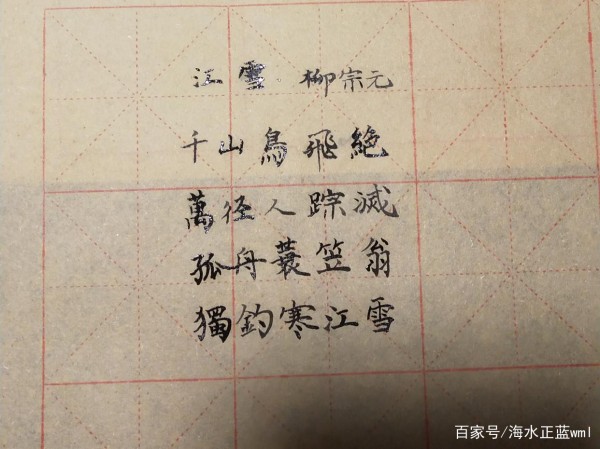 江雪 柳宗元
千山鳥飛絶
萬径人踪滅
孤舟蓑笠翁
獨釣寒江雪
百家号/海水正蓝wml